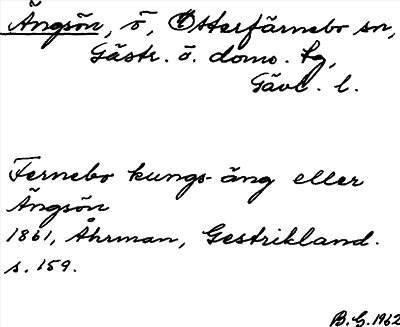 Ängsön, ö, Österfärnebo sn,
Gästr. ö. doms. fg,
Gävl. l.
Fernebo kungs-äng eller
Ängsön
1861, Åhrman, Gestrikland.
s. 159.
B.G. 1962